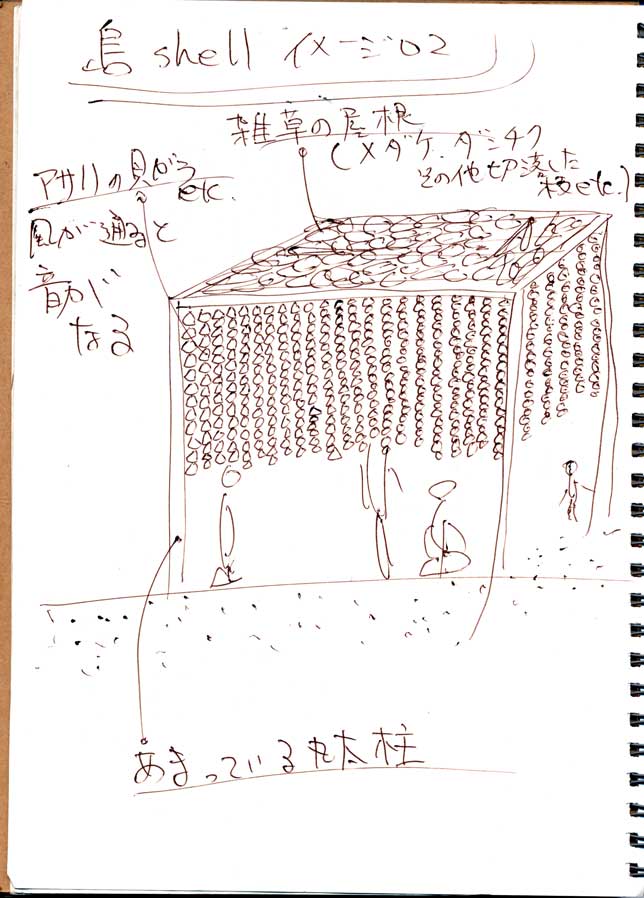 島 shell イメージ02
雑草の屋根
(メダケ、ダンチク
その他切り落した
枝etc.)
アサリの貝がら
etc.
風が通ると
音が
なる
あまっている丸太柱